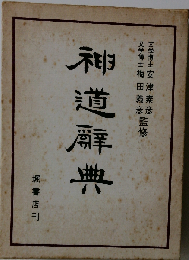 文学博士 安津素彦
文学博士 梅田義彦 監修
神道辭典
堀書店刊